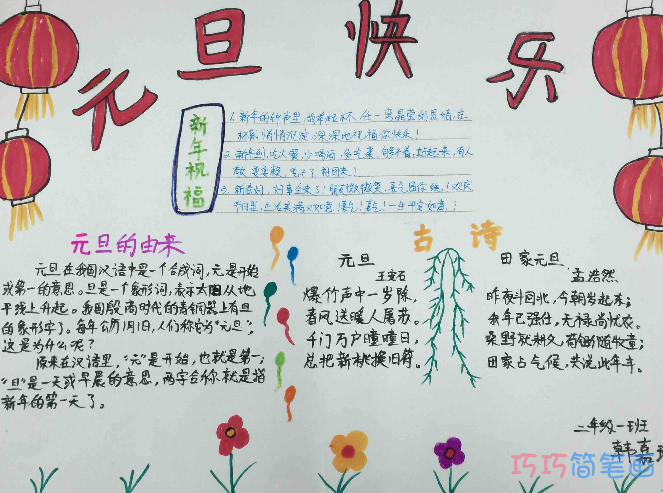 元旦快乐
新年祝福
1. 新年的钟声里,我举起杯,任一窝晶莹的思绪,在
杯底,悄悄沉淀,深深地祝福你快乐!
元旦的由来
元旦在我国汉语中是一个合成词,元是开始
或第一的意思。旦是一个象形词,表示太阳从地
平线上升起。我国殷商时代的青铜器上有旦
的象形字了。每年公历1月1日,人们称它为“元旦”,
这是为什么呢?
原来在汉语里,“元”是开始,也就是第一;
“旦”是一天或早晨的意思,两字合称就是指
新年的第一天了。
古诗
元旦
王安石
爆竹声中一岁除,
春风送暖入屠苏。
千门万户曈曈日,
总把新桃换旧符。
田家元旦
孟浩然
昨夜斗回北,今朝岁起东;
余年已强仕,无禄尚忧农。
桑野就耕父,荷锄随牧童;
田家占气候,共说此年丰。
二年级一班
韩嘉
巧巧简笔画